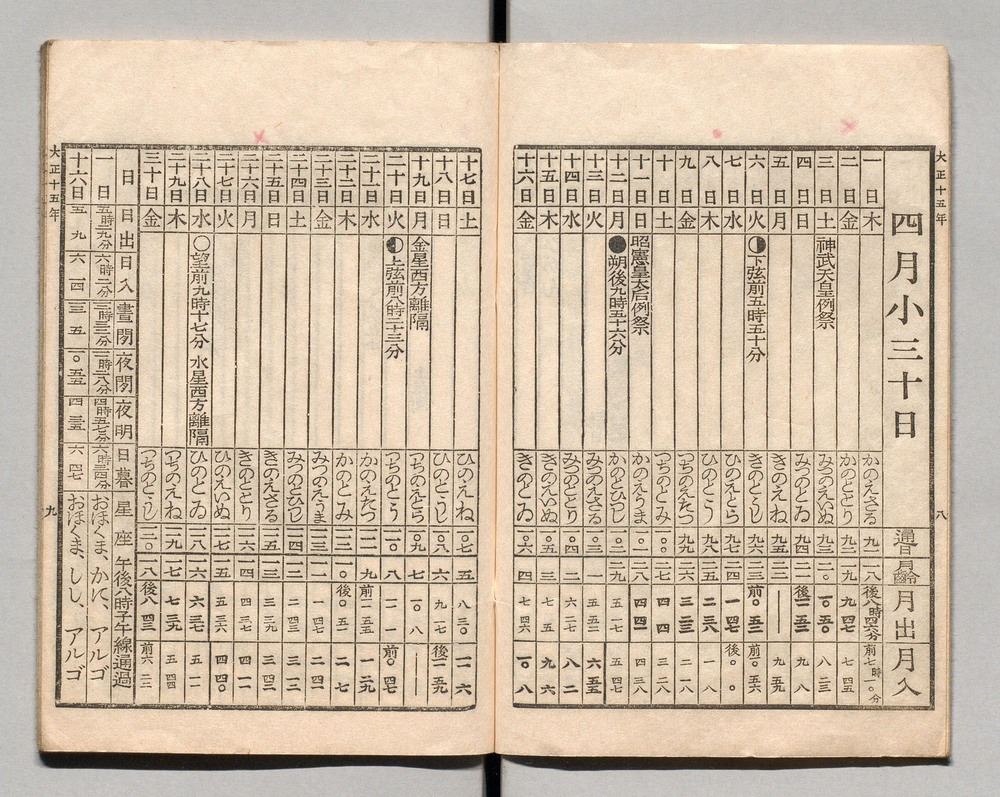 大正十五年
八
四月小三十日
通日 月齢 月出 月入
一日 木 かのえさる 九一 一八 後八時四六分 前七時一〇分
二日 金 かのととり 九二 一九 九四七 七四五
三日 土 神武天皇例祭 みづのえいぬ 九三 二〇 一〇五〇 八二三
四日 日 みづのとゐ 九四 二一 後一一五二 九八
五日 月 きのえね 九五 二二 — 九五九
六日 火 ◑下弦前五時五十分 きのとうし 九六 二三 前〇五二 前〇五六
七日 水 ひのえとら 九七 二四 一四七 後〇〇
八日 木 ひのとう 九八 二五 二三八 一八
九日 金 つちのえたつ 九九 二六 三二三 二一八
十日 土 つちのとみ 一〇〇 二七 四四 三二八
十一日 日 昭憲皇太后例祭 かのえうま 一〇一 二八 四四一 四三八
十二日 月 ●朔後九時五十六分 かのとひつじ 一〇二 二九 五一七 五四七
十三日 火 みづのえさる 一〇三 一 五五二 六五五
十四日 水 みづのととり 一〇四 二 六二七 八二
十五日 木 きのえいぬ 一〇五 三 七五 九六
十六日 金 きのとゐ 一〇六 四 七四六 一〇八
十七日 土 ひのえね 一〇七 五 八三〇 一一六
十八日 日 ひのとうし 一〇八 六 九一七 後一一五九
十九日 月 金星西方離隔 つちのえとら 一〇九 七 一〇八 —
二十日 火 ◐上弦前八時二十三分 つちのとう 一一〇 八 一一〇 前〇四七
二十一日 水 かのえたつ 一一一 九 前一一五五 一二九
二十二日 木 かのとみ 一一二 一〇 後〇五一 二七
二十三日 金 みづのえうま 一一三 一一 一四七 二四一
二十四日 土 みづのとひつじ 一一四 一二 二四三 三一二
二十五日 日 きのえさる 一一五 一三 三三九 三四一
二十六日 月 きのととり 一一六 一四 四三七 四一〇
二十七日 火 ひのえいぬ 一一七 一五 五三六 四四〇
二十八日 水 〇望前九時十七分 水星西方離隔 ひのとゐ 一一八 一六 六三七 五一一
二十九日 木 つちのえね 一一九 一七 七三九 五四四
三十日 金 つちのとうし 一二〇 一八 後八四三 前六二二
日 日出 日入 昼間 夜間 夜明 日暮 星座 午後八時子午線通過
一日 五時二九分 六時二分 一二時三三分 一一時二八分 四時五七分 六時三四分 おほぐま、かに、アルゴ
十六日 五九 六一四 一三五 一〇五五 四三五 六四七 おほぐま、しし、アルゴ
大正十五年
九